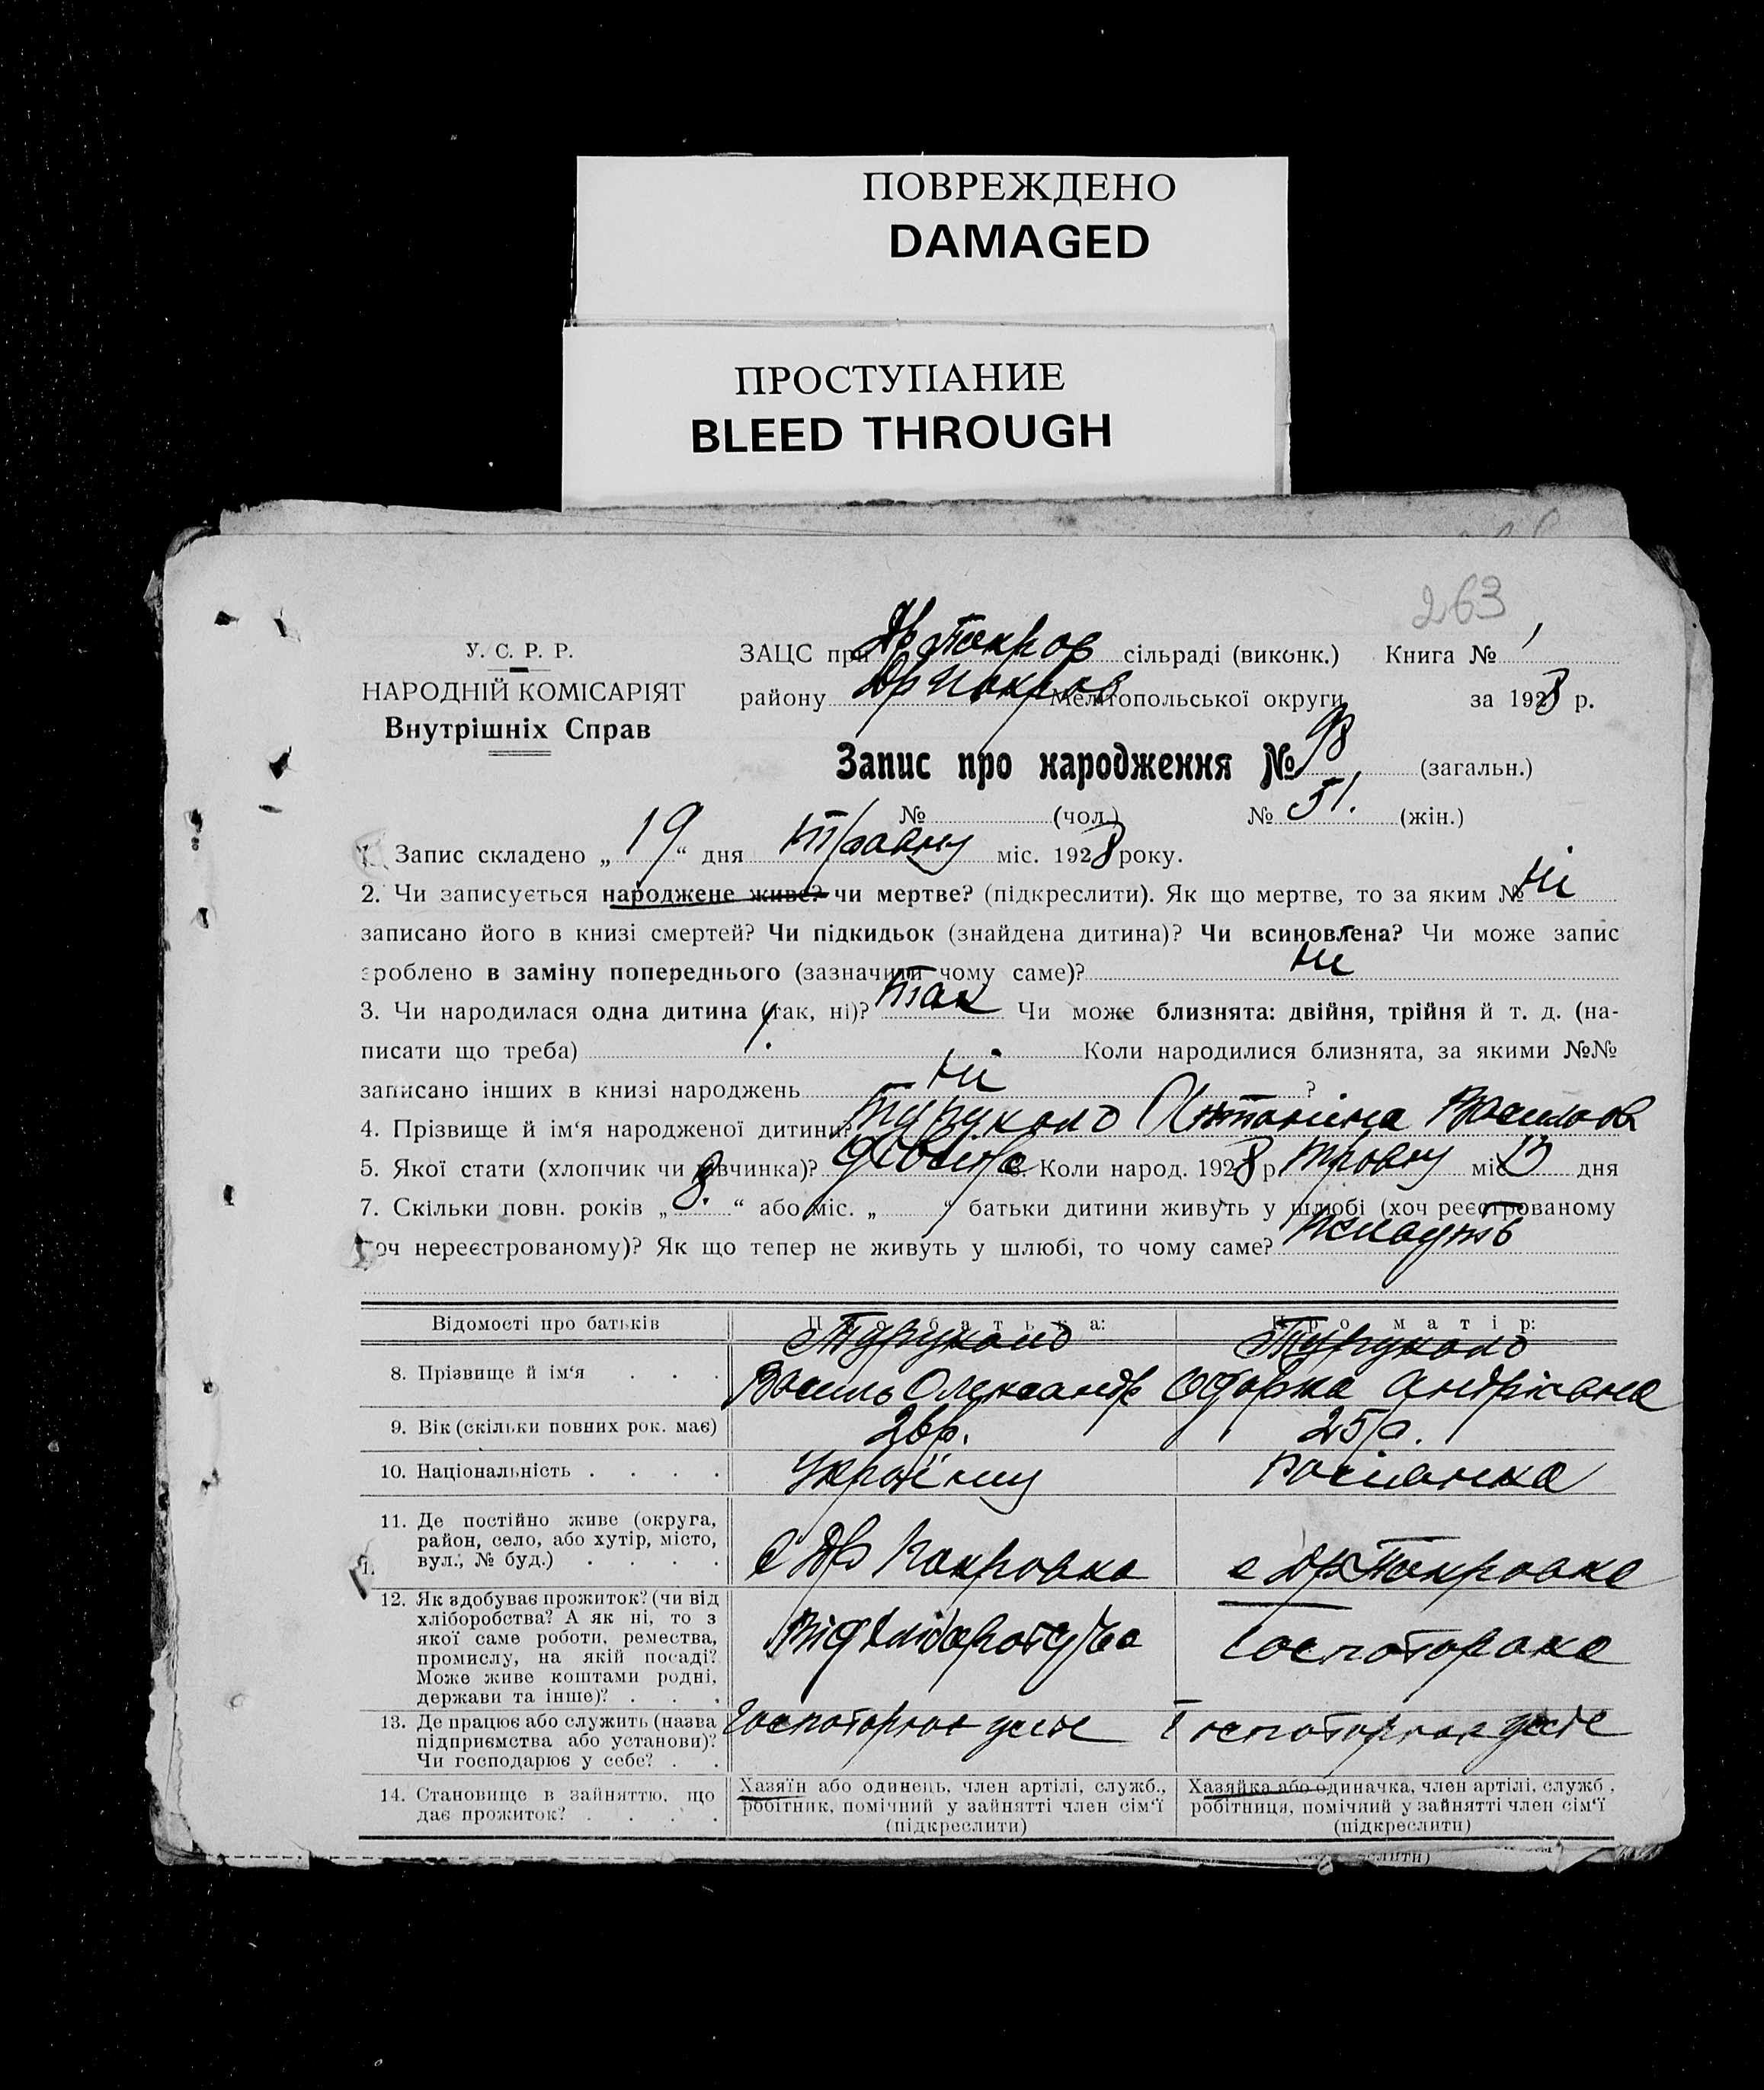 ПОВРЕЖДЕНО
DAMAGED
ПРОСТУПАНИЕ
BLEED THROUGH
263
У. С. Р. Р.
НАРОДНІЙ КОМІСАРІЯТ
Внутрішніх Справ
ЗАЦС при Др Покров сільраді (виконк.) Книга № 1
району Др Покров Мелітопольської округи за 1928 р.
Запис про народження № 98 (загальн.)
№ (чол.) № 51. (жін.)
1. Запис складено „19“ дня травну міс. 1928 року.
2. Чи записується народжене живе? чи мертве? (підкреслити). Як що мертве, то за яким № ні
записано його в книзі смертей? Чи підкидьок (знайдена дитина)? Чи всиновлена? Чи може запис
зроблено в заміну попереднього (зазначити чому саме)? ні
3. Чи народилася одна дитина (так, ні)? так Чи може близнята: двійня, трійня й т. д. (на-
писати що треба) Коли народилися близнята, за якими №№
записано інших в книзі народжень ні ?
4. Прізвище й ім‘я народженої дитини? Туруколо Антоніна Васильов
5. Якої стати (хлопчик чи дівчинка)? 6. Коли народ. 1928 р. травну міс. 13 дня
7. Скільки повн. років „8.“ або міс. „ “ батьки дитини живуть у шлюбі (хоч реєстрованому
хоч нереєстрованому)? Як що тепер не живуть у шлюбі, то чому саме?
Відомості про батьків
Про батька:
Про матір:
8. Прізвище й ім‘я . . .
Туруколо
Василь Олександр
Туруколо
Одарка Андріївна
9. Вік (скільки повних рок. має)
26р.
25р.
10. Національність . . . .
Україну
Росіянка
11. Де постійно живе (округа,
район, село, або хутір, місто,
вул., № буд.) . . . .
с Др Покровка
с Др Покровка
12. Як здобуває прожиток? (чи від
хліборобства? А як ні, то з
якої саме роботи, ремества,
промислу, на якій посаді?
Може живе коштами родні,
держави та інше)? . . .
Від
Госпоторка
13. Де працює або служить (назва
підприємства або установи)?
Чи господарює у себе? . .
14. Становище в зайняттю, що
дає прожиток? . . . .
Хазяїн або одинець, член артілі, служб.,
робітник, помічний у зайнятті член сім‘ї
(підкреслити)
Хазяйка або одиначка, член артілі, служб.,
робітниця, помічний у зайнятті член сім‘ї
(підкреслити)